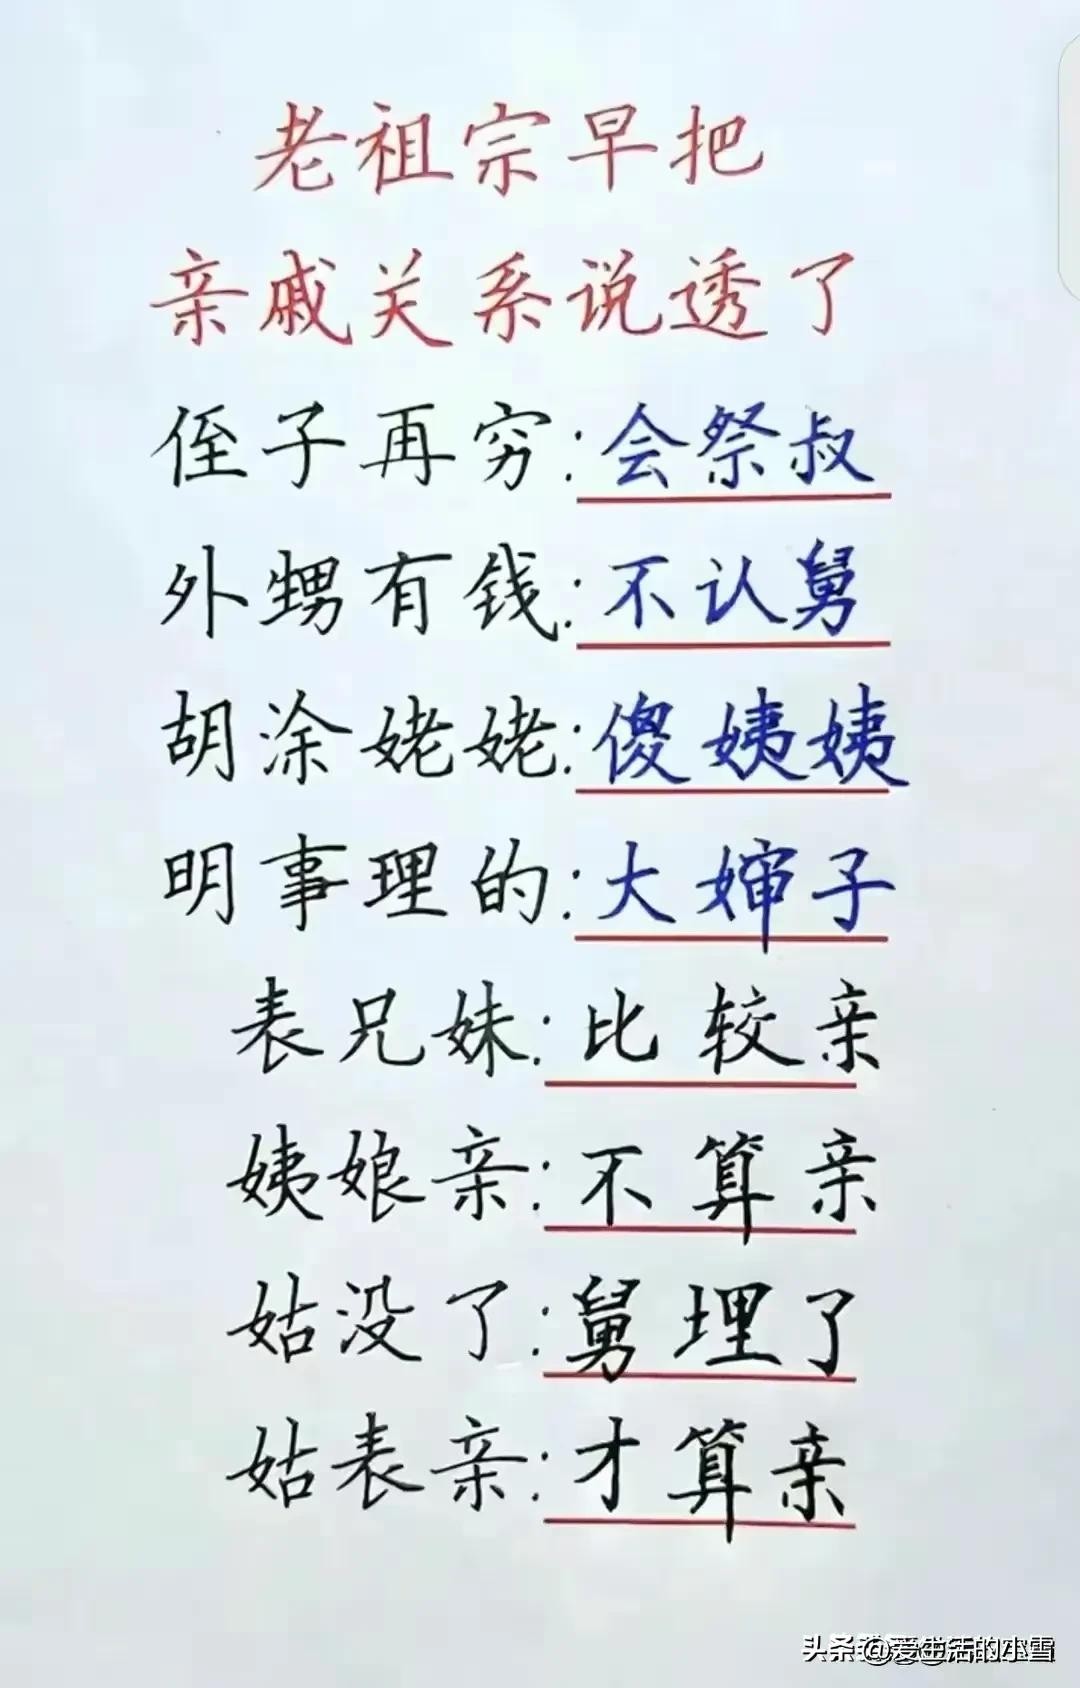 老祖宗早把
亲戚关系说透了
侄子再穷:会祭叔
外甥有钱:不认舅
胡涂姥姥:傻姨姨
明事理的:大婶子
表兄妹:比较亲
姨娘亲:不算亲
姑没了:舅埋了
姑表亲:才算亲
头条 @爱生活的小雪